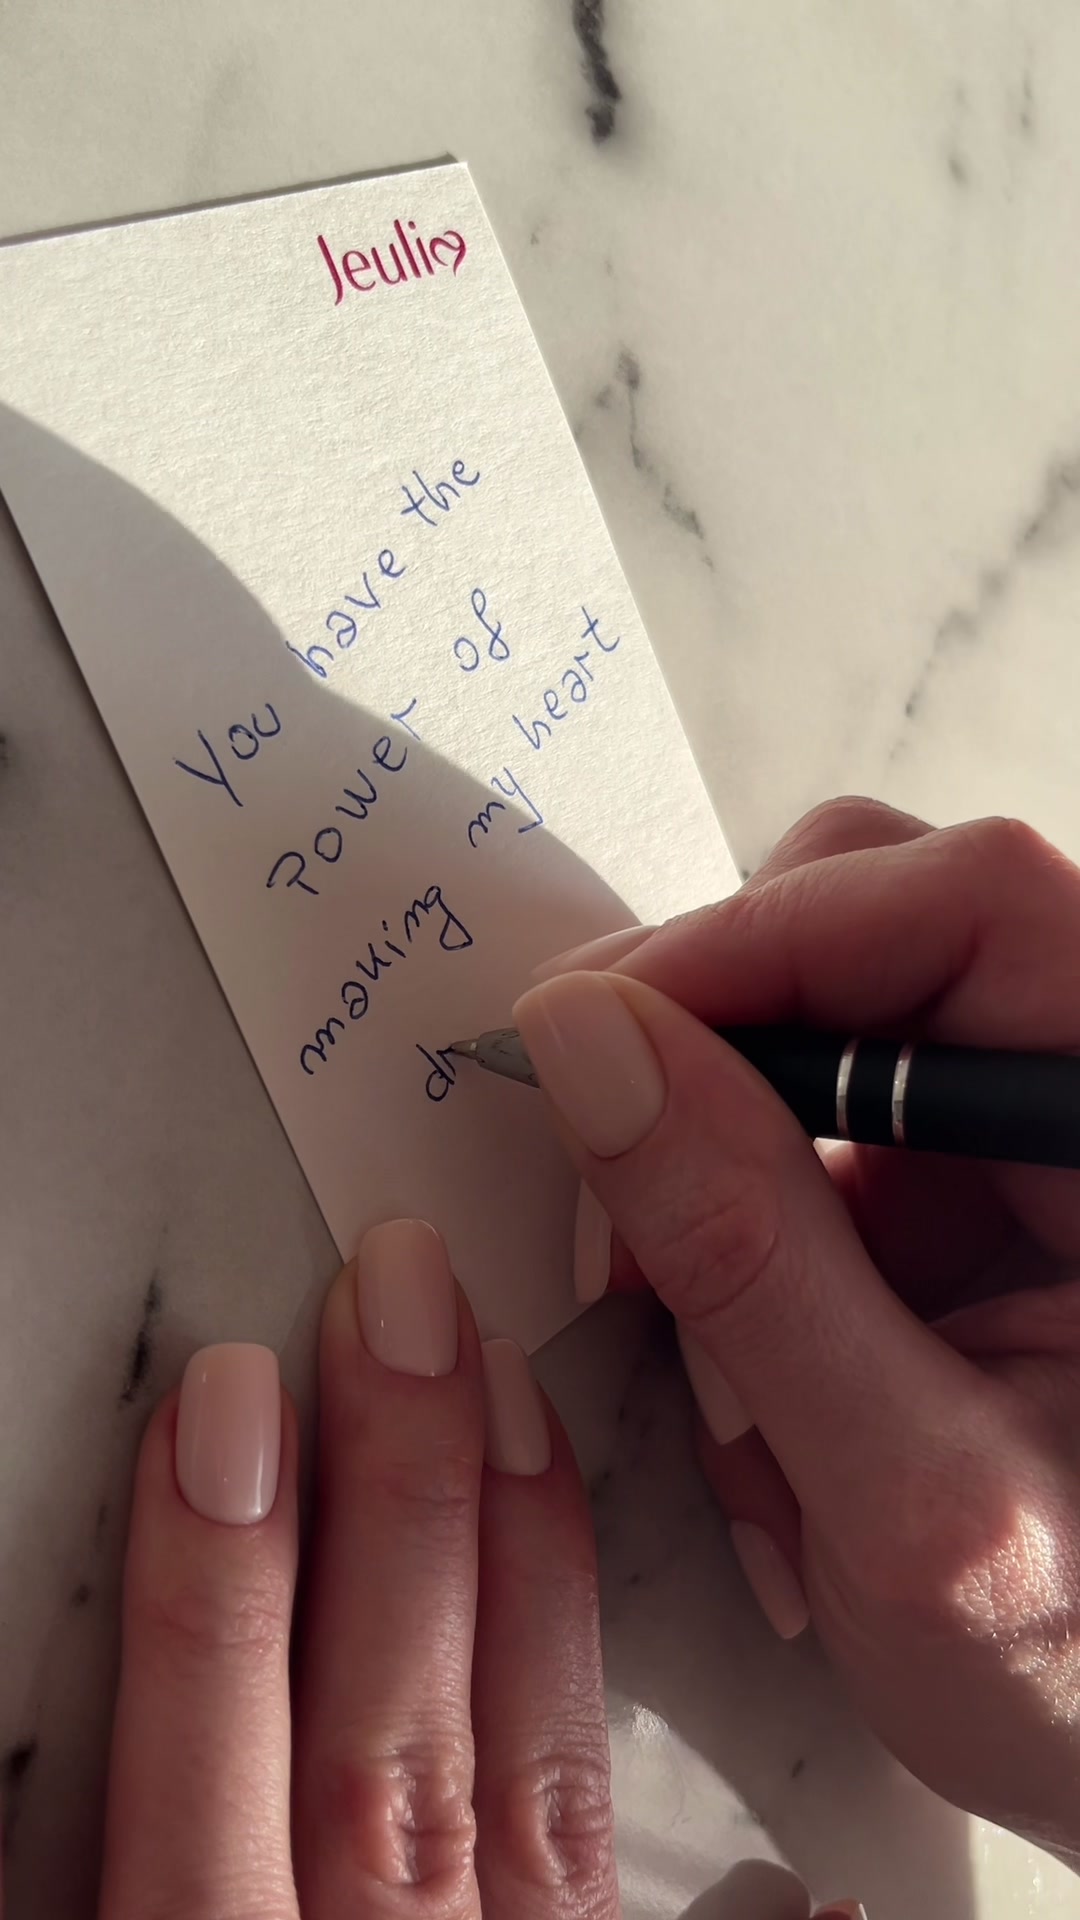 Jeulia
You have the
Power of
making my heart
dr